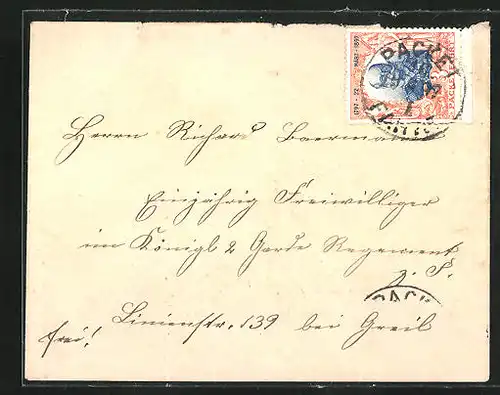 PACKET
1797 · 22 MÄRZ · 1897
PACKETFAHRT
Herrn Richard Baermann
Einjährig Freiwilliger
im Königl 2 Garde Regement
z. F.
PACK
Linienstr. 139 bei Greib
frei!